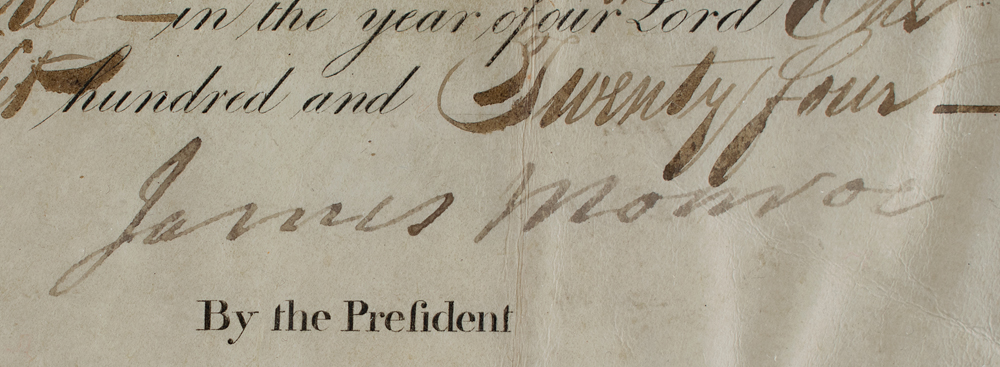 in the year of our Lord One
hundred and Twenty four
James Monroe
By the Preſident